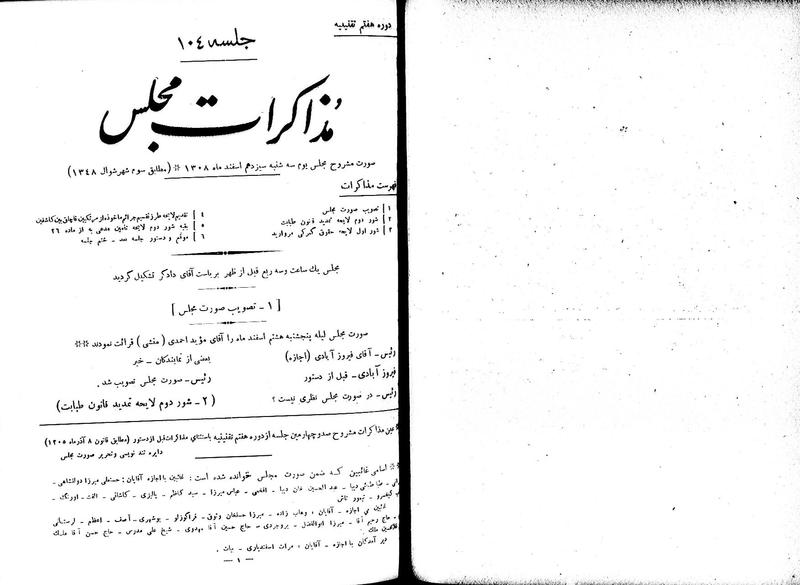 دوره هفتم تقنینیه
جلسه ۱۰٤
مذاکرات مجلس
صورت مشروح مجلس یوم سه شنبه سیزدهم اسفند ماه ۱۳۰۸ * (مطابق سوم شهر شوال ۱۳٤۸)
فهرست مذاکرات
۱) تصویب صورت مجلس
۲) شور دوم لایحه تمدید قانون طبابت
۳) شور اول لایحه حقوق گمرکی مروارید
٤) تقدیم لایحه طرز تقسیم جرائم ماخوذه از مرتکبین قاچاق بین کاشفین
٥) بقیه شور دوم لایحه تأمین مدعی به از ماده ۲٦
٦) موقع و دستور جلسه بعد - ختم جلسه
مجلس یك ساعت وسه ربع قبل از ظهر بریاست آقای دادگر تشکیل گردید
[ ۱ - تصویب صورت مجلس ]
صورت مجلس لیله پنجشنبه هشتم اسفند ماه را آقای مؤید احمدی (منشی) قرائت نمودند **
رئیس - آقای فیروز آبادی (اجازه)
فیروز آبادی - قبل از دستور
رئیس - در صورت مجلس نظری نیست ؟
بعضی از نمایندگان - خیر
رئیس - صورت مجلس تصویب شد .
(۲ - شور دوم لایحه تمدید قانون طبابت)
* عین مذاکرات مشروح صدوچهارمین جلسه از دوره هفتم تقنینیه باستثنای مذاکرات قبل از دستور (مطابق قانون ۸ آذرماه ۱۳۰٥)
دایره تند نویسی وتحریر صورت مجلس
** اسامی غائبین که ضمن صورت مجلس خوانده شده است : غائبین با اجازه آقایان : حسنعلی میرزا دولتشاهی -
طباطبائی دیبا - عبد الحسین خان دیبا - افخمی - عباس میرزا - سید کاظم - یالیزی - کاشانی - الفت - اورنگ -
کیخسرو - تیمور تاش
غائبین بی اجازه - آقایان : وهاب زاده - میرزا حسنخان وثوق - قراگوزلو - بوشهری - آصف - اعظم - لرستانی
- حاج رحیم آقا - میرزا ابوالفضل - بروجردی - حاج حسین آقا مهدوی - شیخ علی مدرس - حاج حسن آقا ملك
دیر آمدگان با اجازه - آقایان : مرآت اسفندیاری - بیات .
— ۱ —